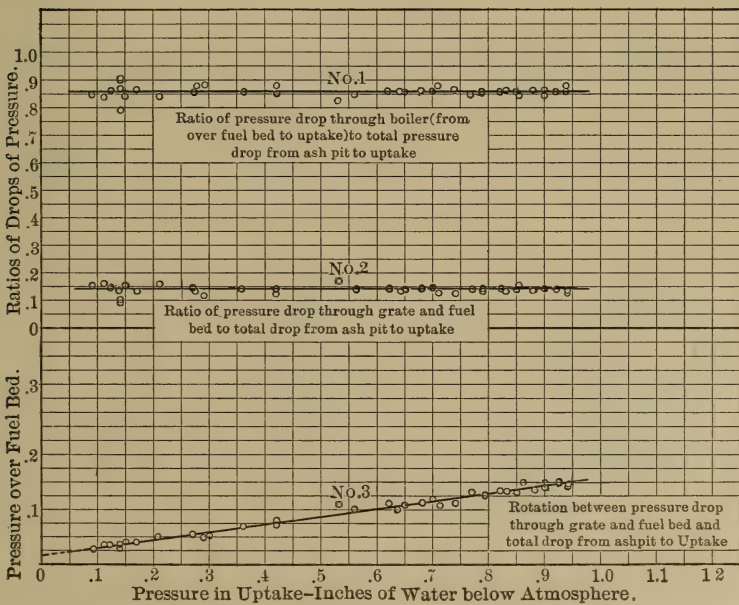 Ratios of Drops of Pressure.
1.0
.9
.8
.7
.6
.5
.4
.3
.2
.1
0
No.1
Ratio of pressure drop through boiler(from
over fuel bed to uptake)to total pressure
drop from ash pit to uptake
No.2
Ratio of pressure drop through grate and fuel
bed to total drop from ash pit to uptake
Pressure over Fuel Bed.
.3
.2
.1
No.3
Rotation between pressure drop
through grate and fuel bed and
total drop from ashpit to Uptake
0 .1 .2 .3 .4 .5 .6 .7 .8 .9 1.0 1.1 1 2
Pressure in Uptake-Inches of Water below Atmosphere.